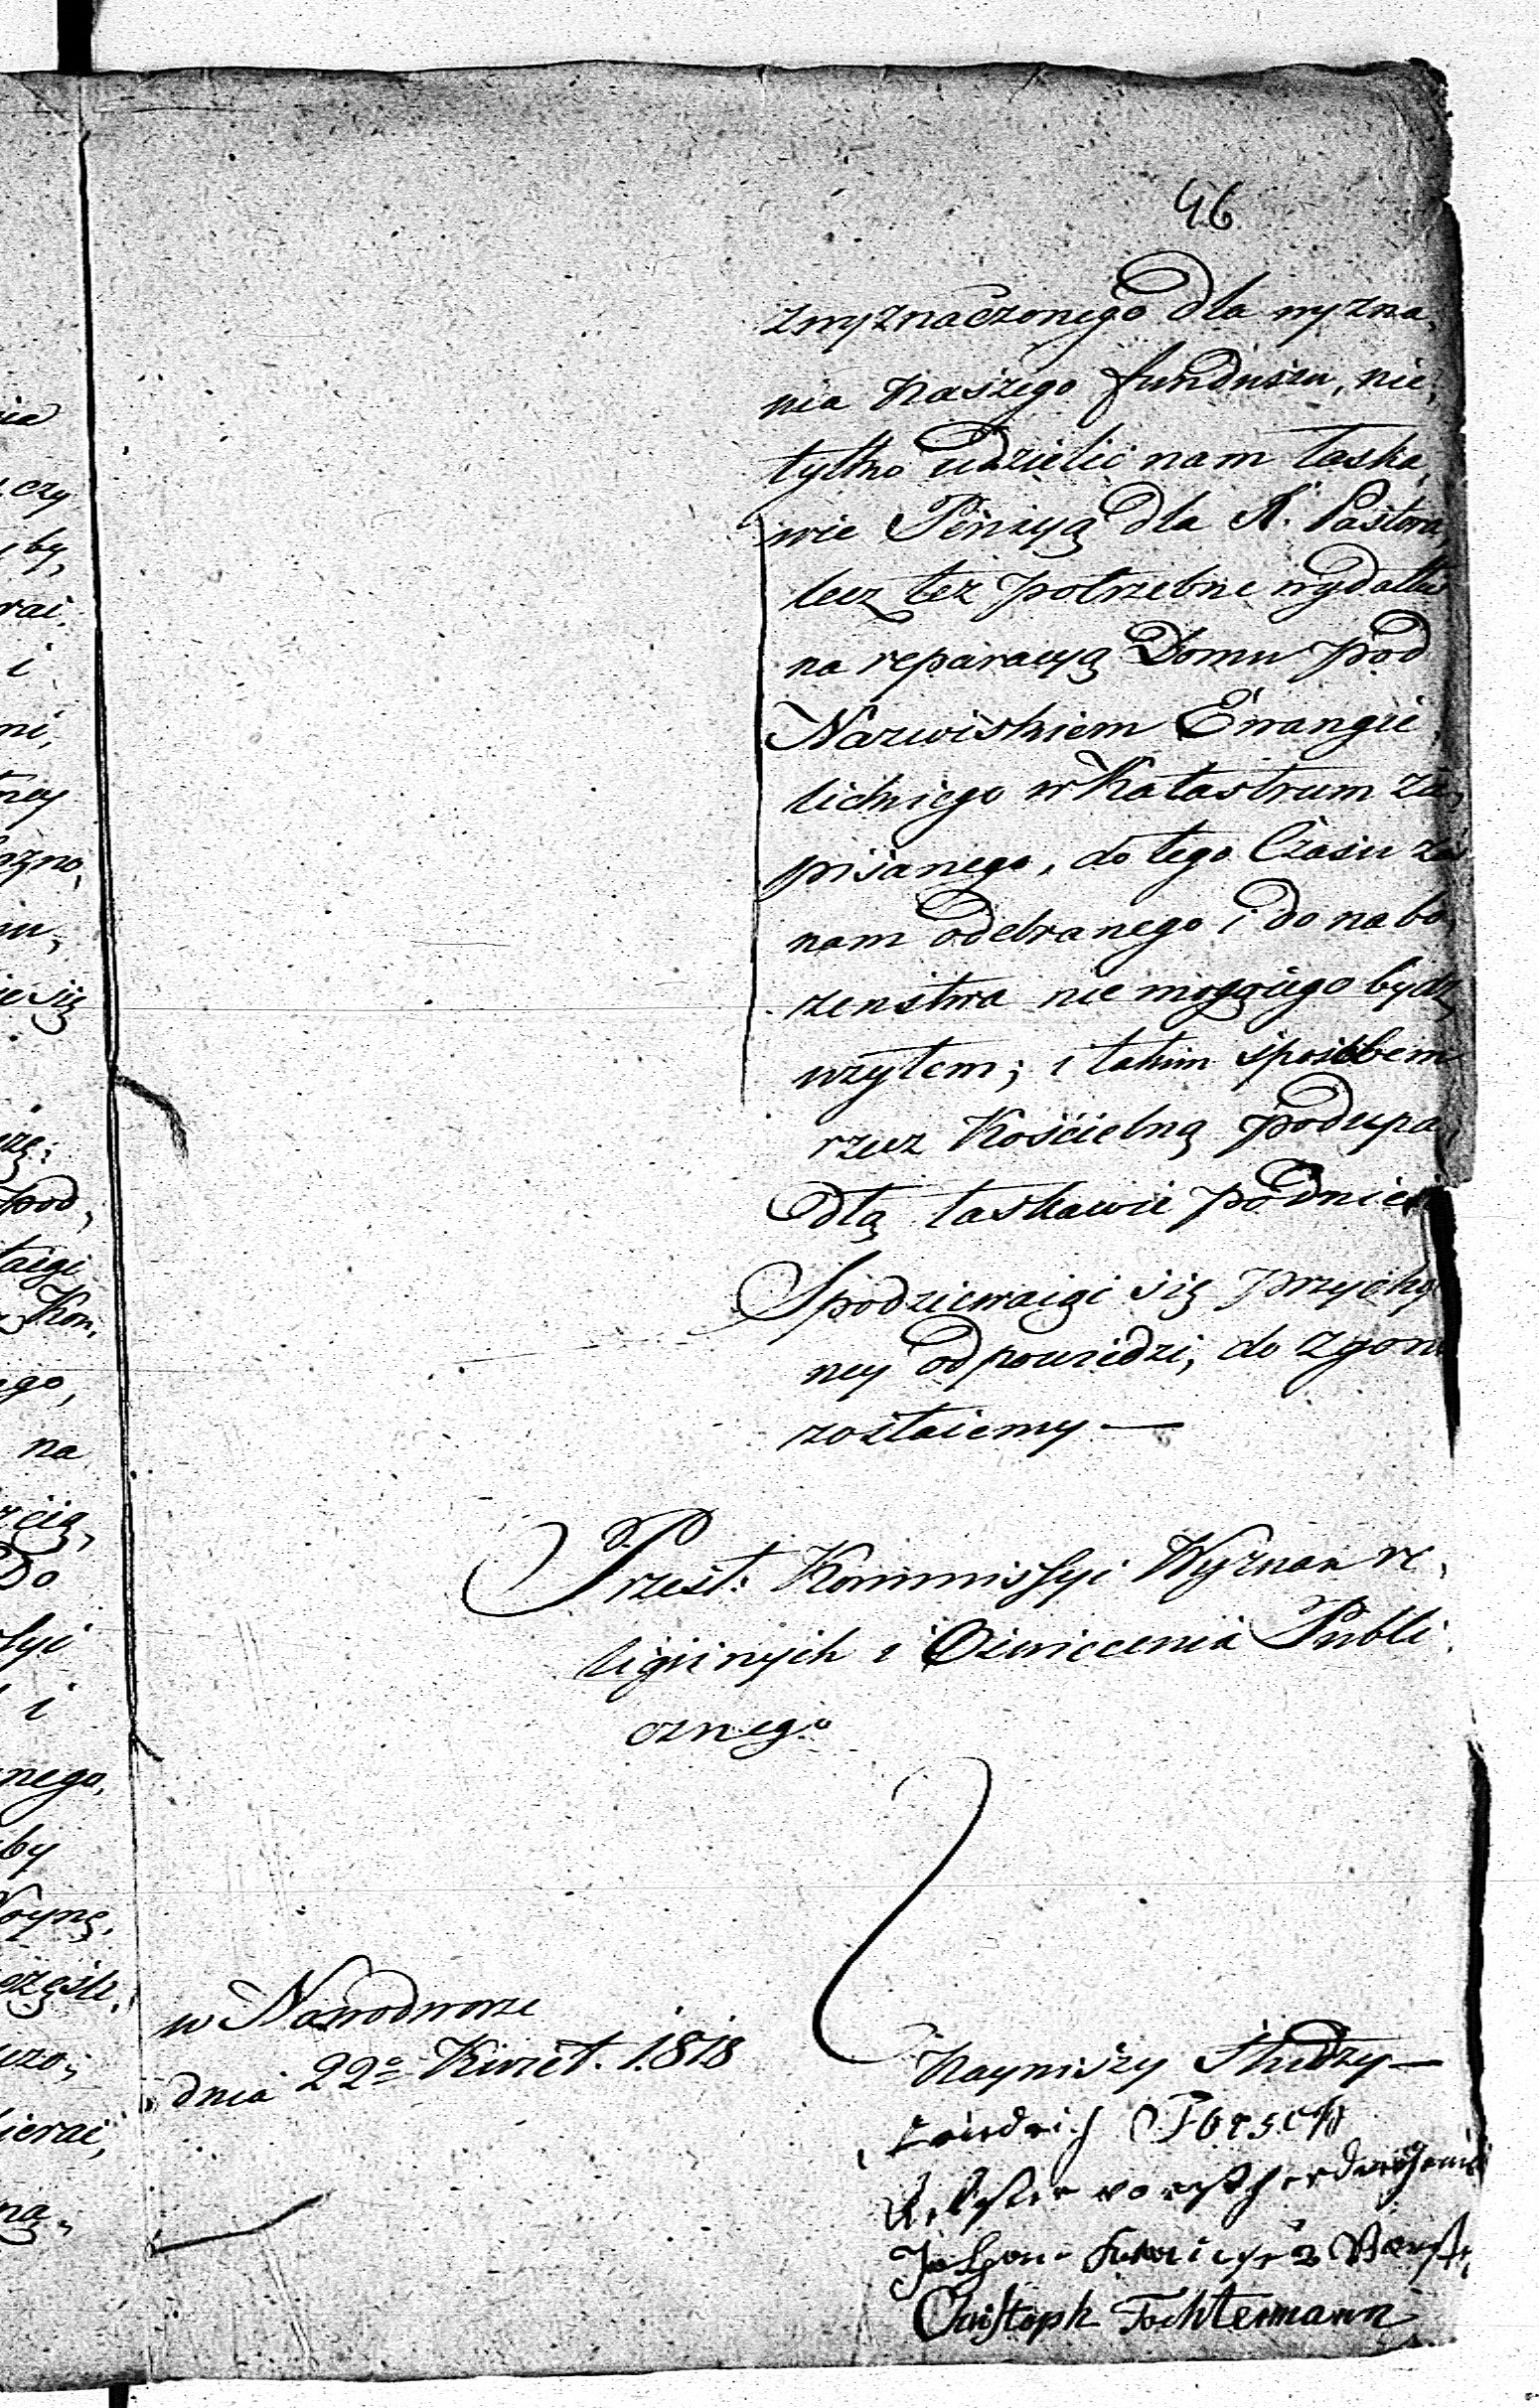 46
zwyznaczonego dla wyzna,
nia Naszego funduszu, nie,
tylko udzielić nam łaska,
wie Pensyą dla X. Pastora,
lecz też potrzebne wydatki
na reparacyą Domu pod
Nazwiskiem Ewangie,
lickiego w Katastrum za,
pisanego, do tego Czasu zaś
nam odebranego i do nabo,
zenstwa nie mogącego bydz
użytem; i takim sposobem
rzecz Kościelną podupa,
dłą łaskawie podnieść
Spodziewaiąc się przychyl
ney odpowiedzi, do zgonu
zostaiemy —
Przest: Kommissyi Wyznan re,
ligiinych i Oswiecenia Publi
cznego
w Nowodworze
dnia 22º Kwiet. 1818
Nayniszy Słudzy —
Friedrich
Christoph Tochtermann
ia
czy
by,
rai.
i
ni,
ney
azno,
iesię
pod,
taiąc
Kon,
ego,
na
Do
syi
i
nego,
by
ierai,
ną,